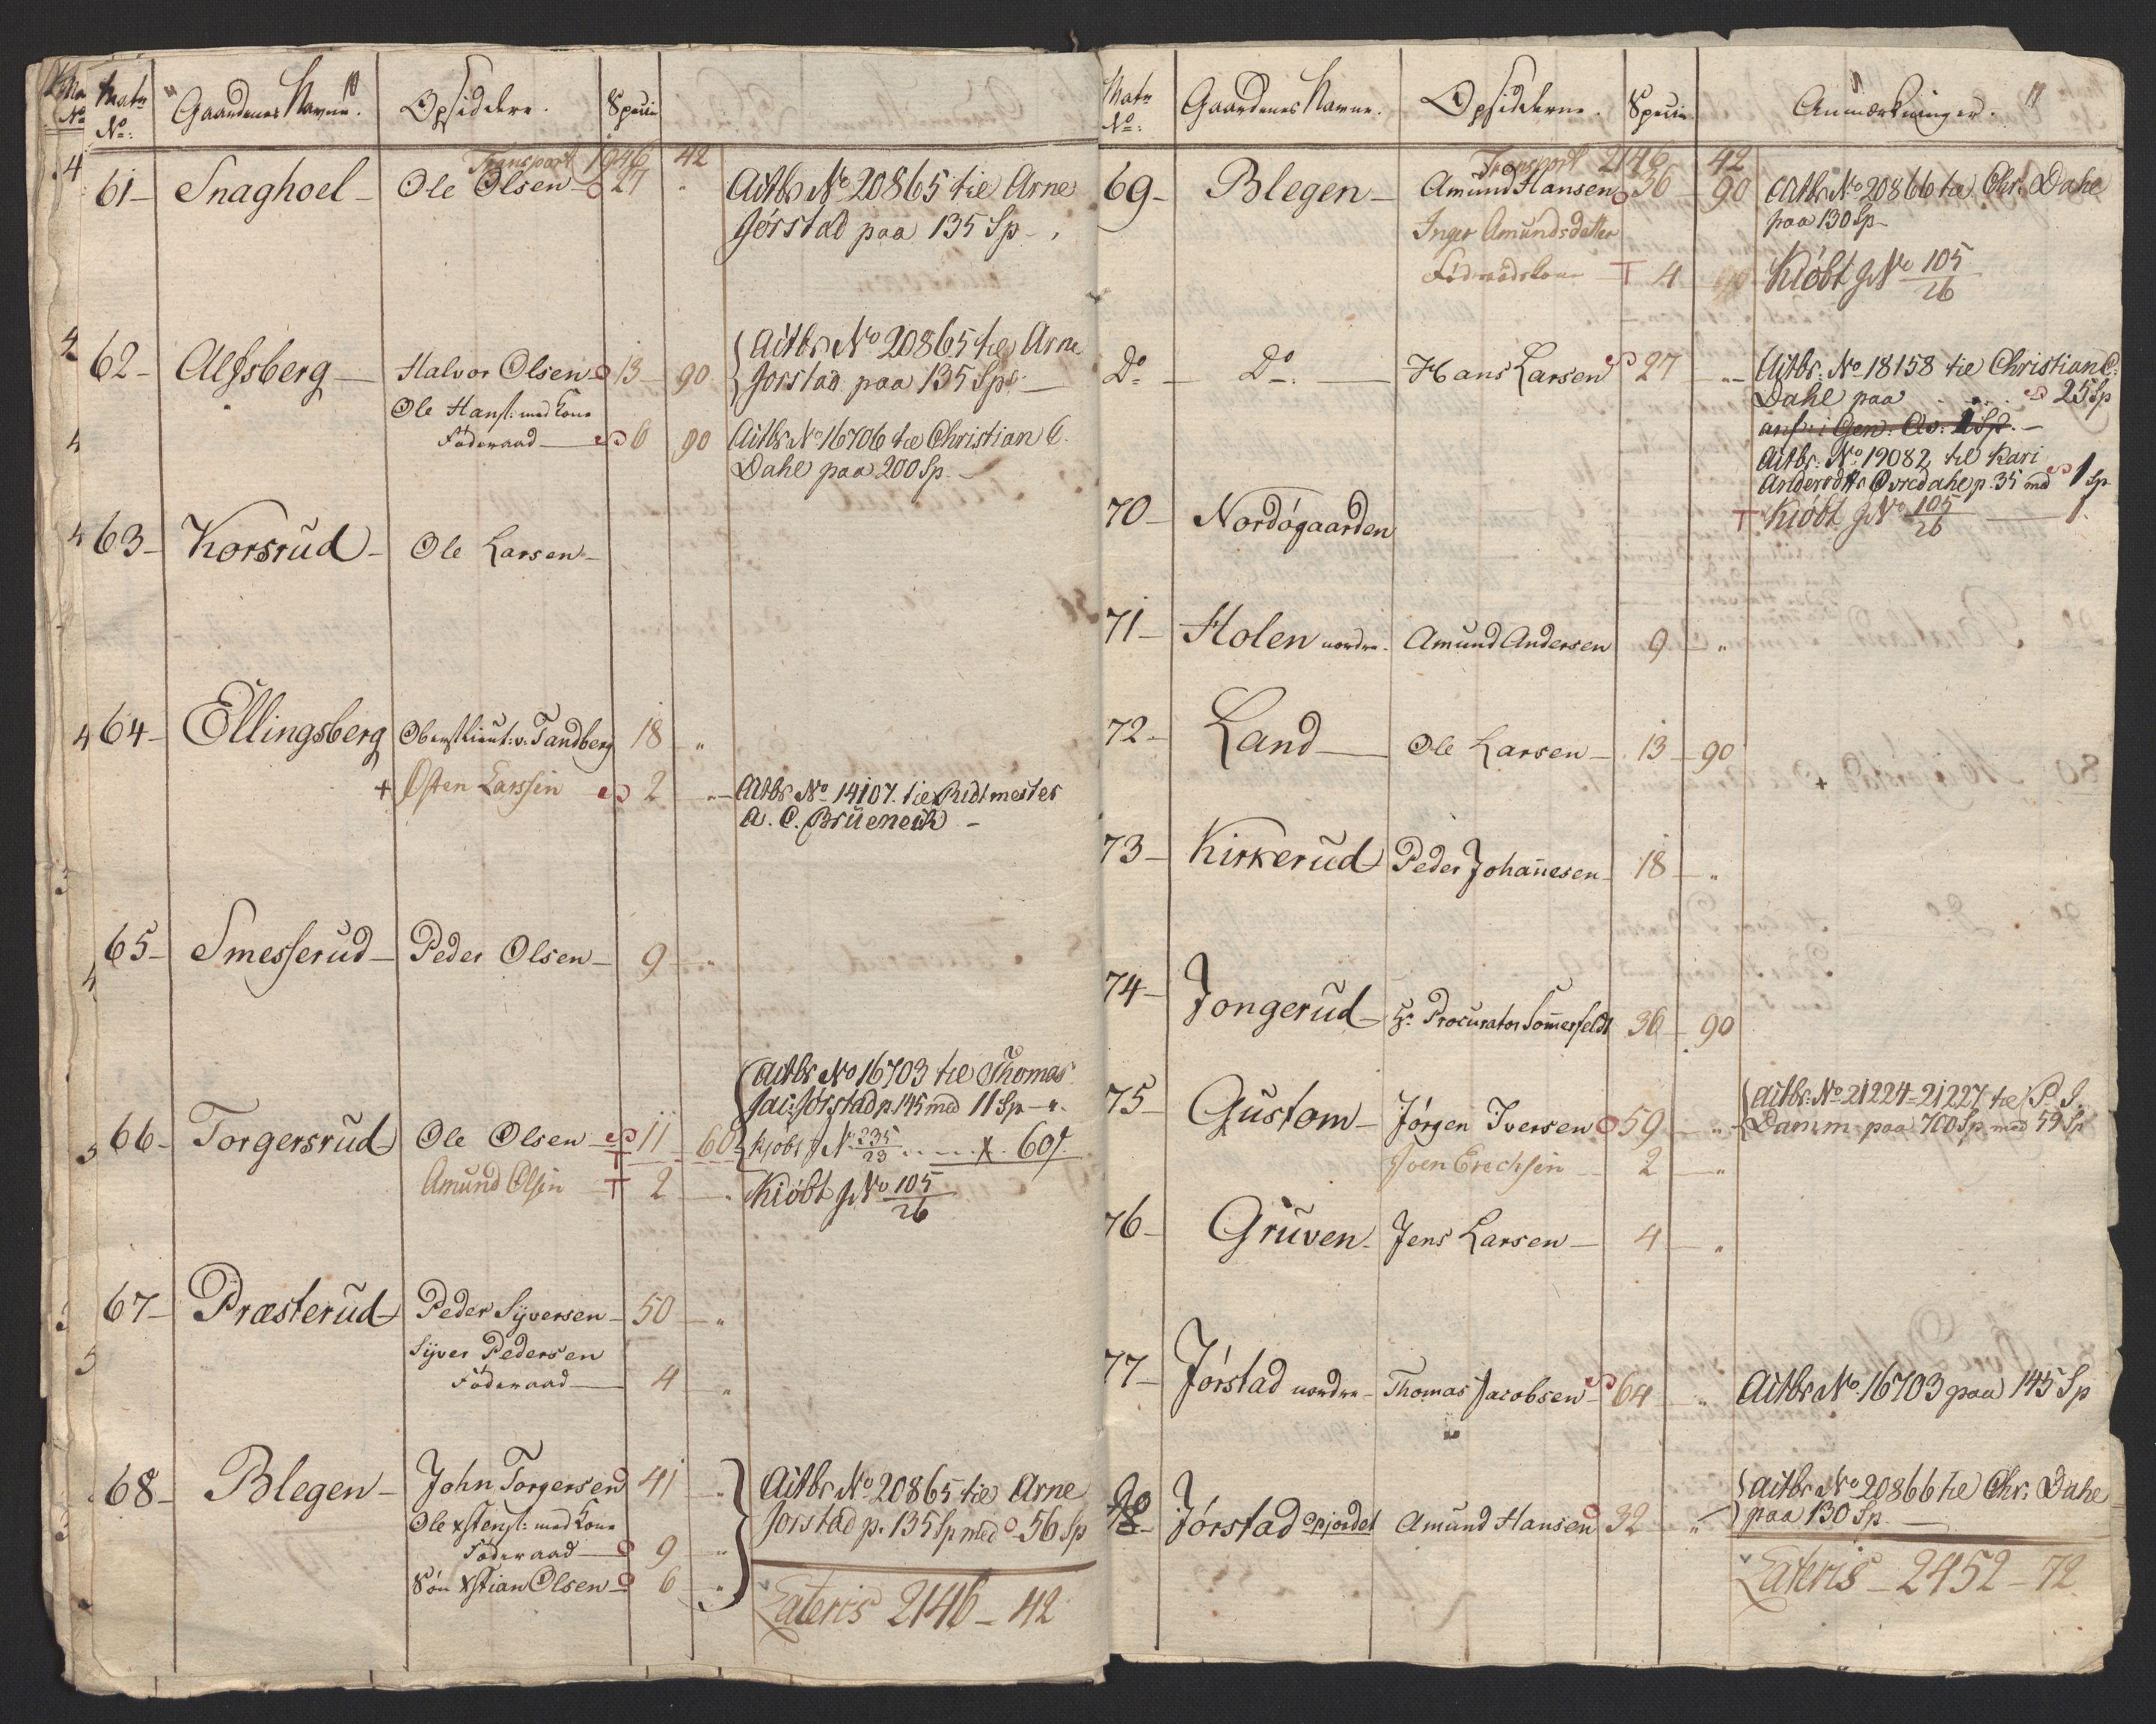 Matr No: Gaardenes Navne. Opsiddere. Specie
Transport 1946 42
61 - Snaghoel - Ole Olsen - 27 "
Actbr No 20865 til Arne
Jørstad paa 135 Sp -
62 - Alfsberg - Halvor Olsen 13 - 90
Actbr No 20865 til Arne
Jørstad paa 135 Sp -
Ole Hans: med Kone
Föderaad - 6 90
Actbr No 16706 til Christian C.
Dahl paa 200 Sp. -
63 - Korsrud - Ole Larsen -
64 - Ellingsberg Oberstlieut: v: Tandberg 18 - "
+ Østen Larssen 2 - "
Actbr No 14107. til Ridtmester
A. C. Brüenech -
65 - Smesserud - Peder Olsen - 9 - "
Actbr No 16703 til Thomas
Jac: Jørstad p. 145 med 11 Sp - ".
66 - Torgersrud Ole Olsen - 11 - 60
Kjøbt J No 235/23 . . . . . 60
Amund Olsen T 2 - "
Kiöbt J No 105/26
67 - Præsterud Peder Syversen - 50 - "
Syver Pedersen
Föderaad - 4 "
68 - Blegen - John Torgersen 41 "
Actbr No 20865 til Arne
Ole xstens: med Kone
Jorstad p. 135 Sp med 56 Sp
Föderaad - 9 "
Sön Xstian Olsen - 6 "
Lateris 2146 - 42
Matr No: Gaardenes Navne. Opsidderne. Specie. Anmærkninger.
Transport 2146 42
69 - Blegen - Amund Hansen 36 - 90
Actbr No 20866 til Chr. Dahl
paa 130 Sp -
Inger Amundsdatter
Födraadskone T 4 90
Kiöbt J No 105/26
Do - Do - Hans Larsen 27 - "
Actbr. No 18158 til Christian C.
Dahl paa . . . . 25 Sp
anf: i Gen: Qv: 1 Sp. -
Actbr: No 19082 til Kari
Andersdtr Øvredahl p. 35 med 1 Sp.
70 - Nordógaarden
T Kiöbt J No 105/26 - 1.
71 - Holen nordre. Amund Andersen 9 - "
72 - Land - Ole Larsen - 13 - 90
73 - Kirkerud Peder Johan̄esen 18 - "
74 - Jongerud - Hr. Procurator Som̄erfeldt 36 - 90
75 - Gustom - Jørgen Iversen 59 - "
Actbr: No 21224 - 21227 til P. I.
Damm paa 700 Sp med 59 Sp
Iven Erechsen - 2 - "
76 - Gruven - Jens Larsen - 4 - "
77 - Jórstad nordre - Thomas Jacobsen - 64 "
Actbr No 16703 paa 145 Sp
78 - Jórstad opjordet Amund Hansen 32 - "
Actbr No 20866 til Chr. Dahl
paa 130 Sp. -
Lateris - 2452 - 72